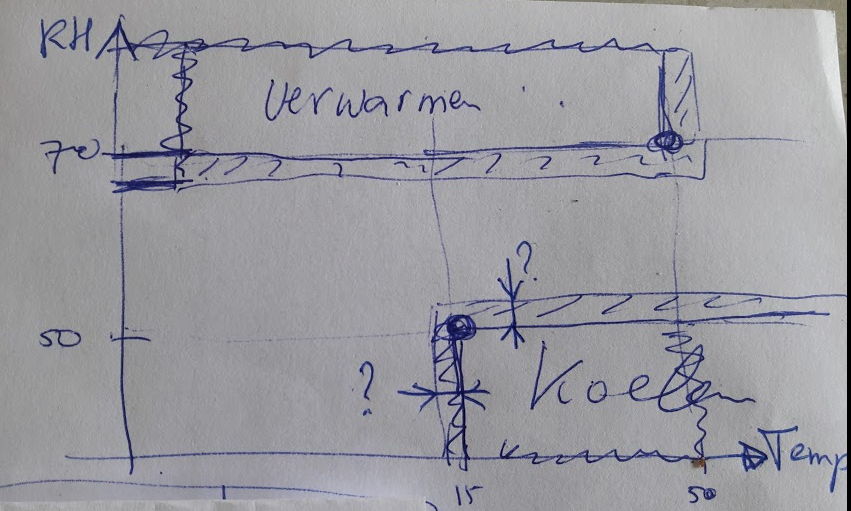 RH
Verwarmen
70
?
50
?
Koelen
Temp
15
50